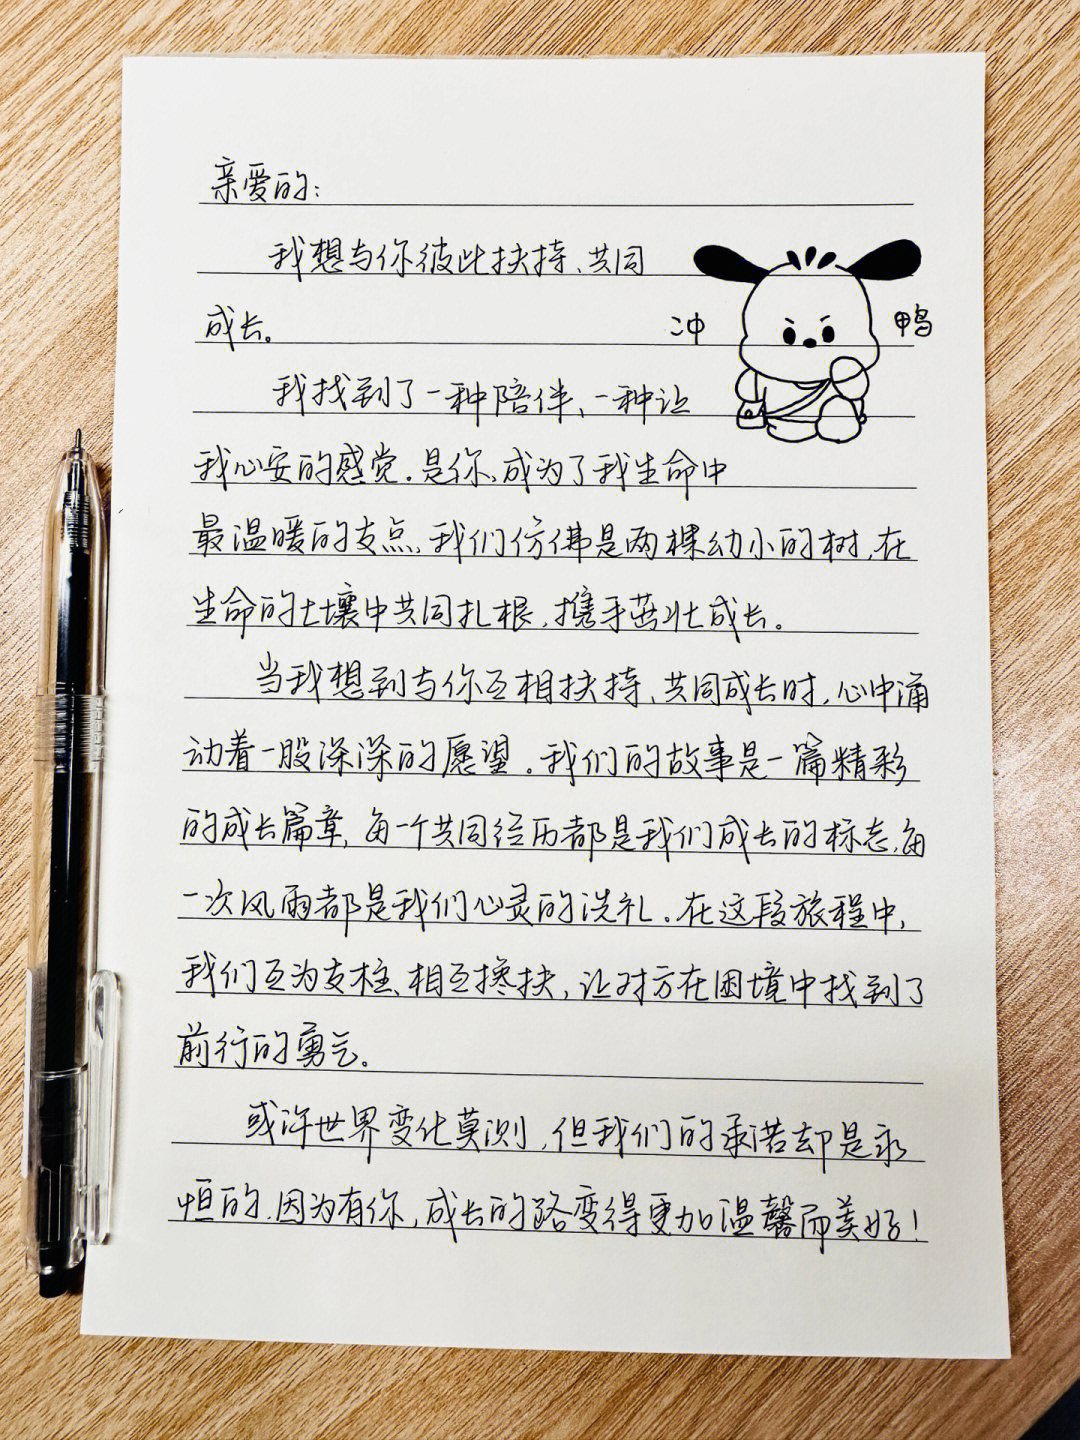 亲爱的:
我想与你彼此扶持、共同
成长。
冲 鸭
我找到了一种陪伴、一种让
我心安的感觉。是你,成为了我生命中
最温暖的支点,我们仿佛是两棵幼小的树,在
生命的土壤中共同扎根,携手茁壮成长。
当我想到与你互相扶持、共同成长时,心中涌
动着一股深深的愿望。我们的故事是一篇精彩
的成长篇章,每一个共同经历都是我们成长的标志,每
一次风雨都是我们心灵的洗礼。在这段旅程中,
我们互为支柱、相互搀扶,让对方在困境中找到了
前行的勇气。
或许世界变化莫测,但我们的承诺却是永
恒的,因为有你,成长的路变得更加温馨而美好!